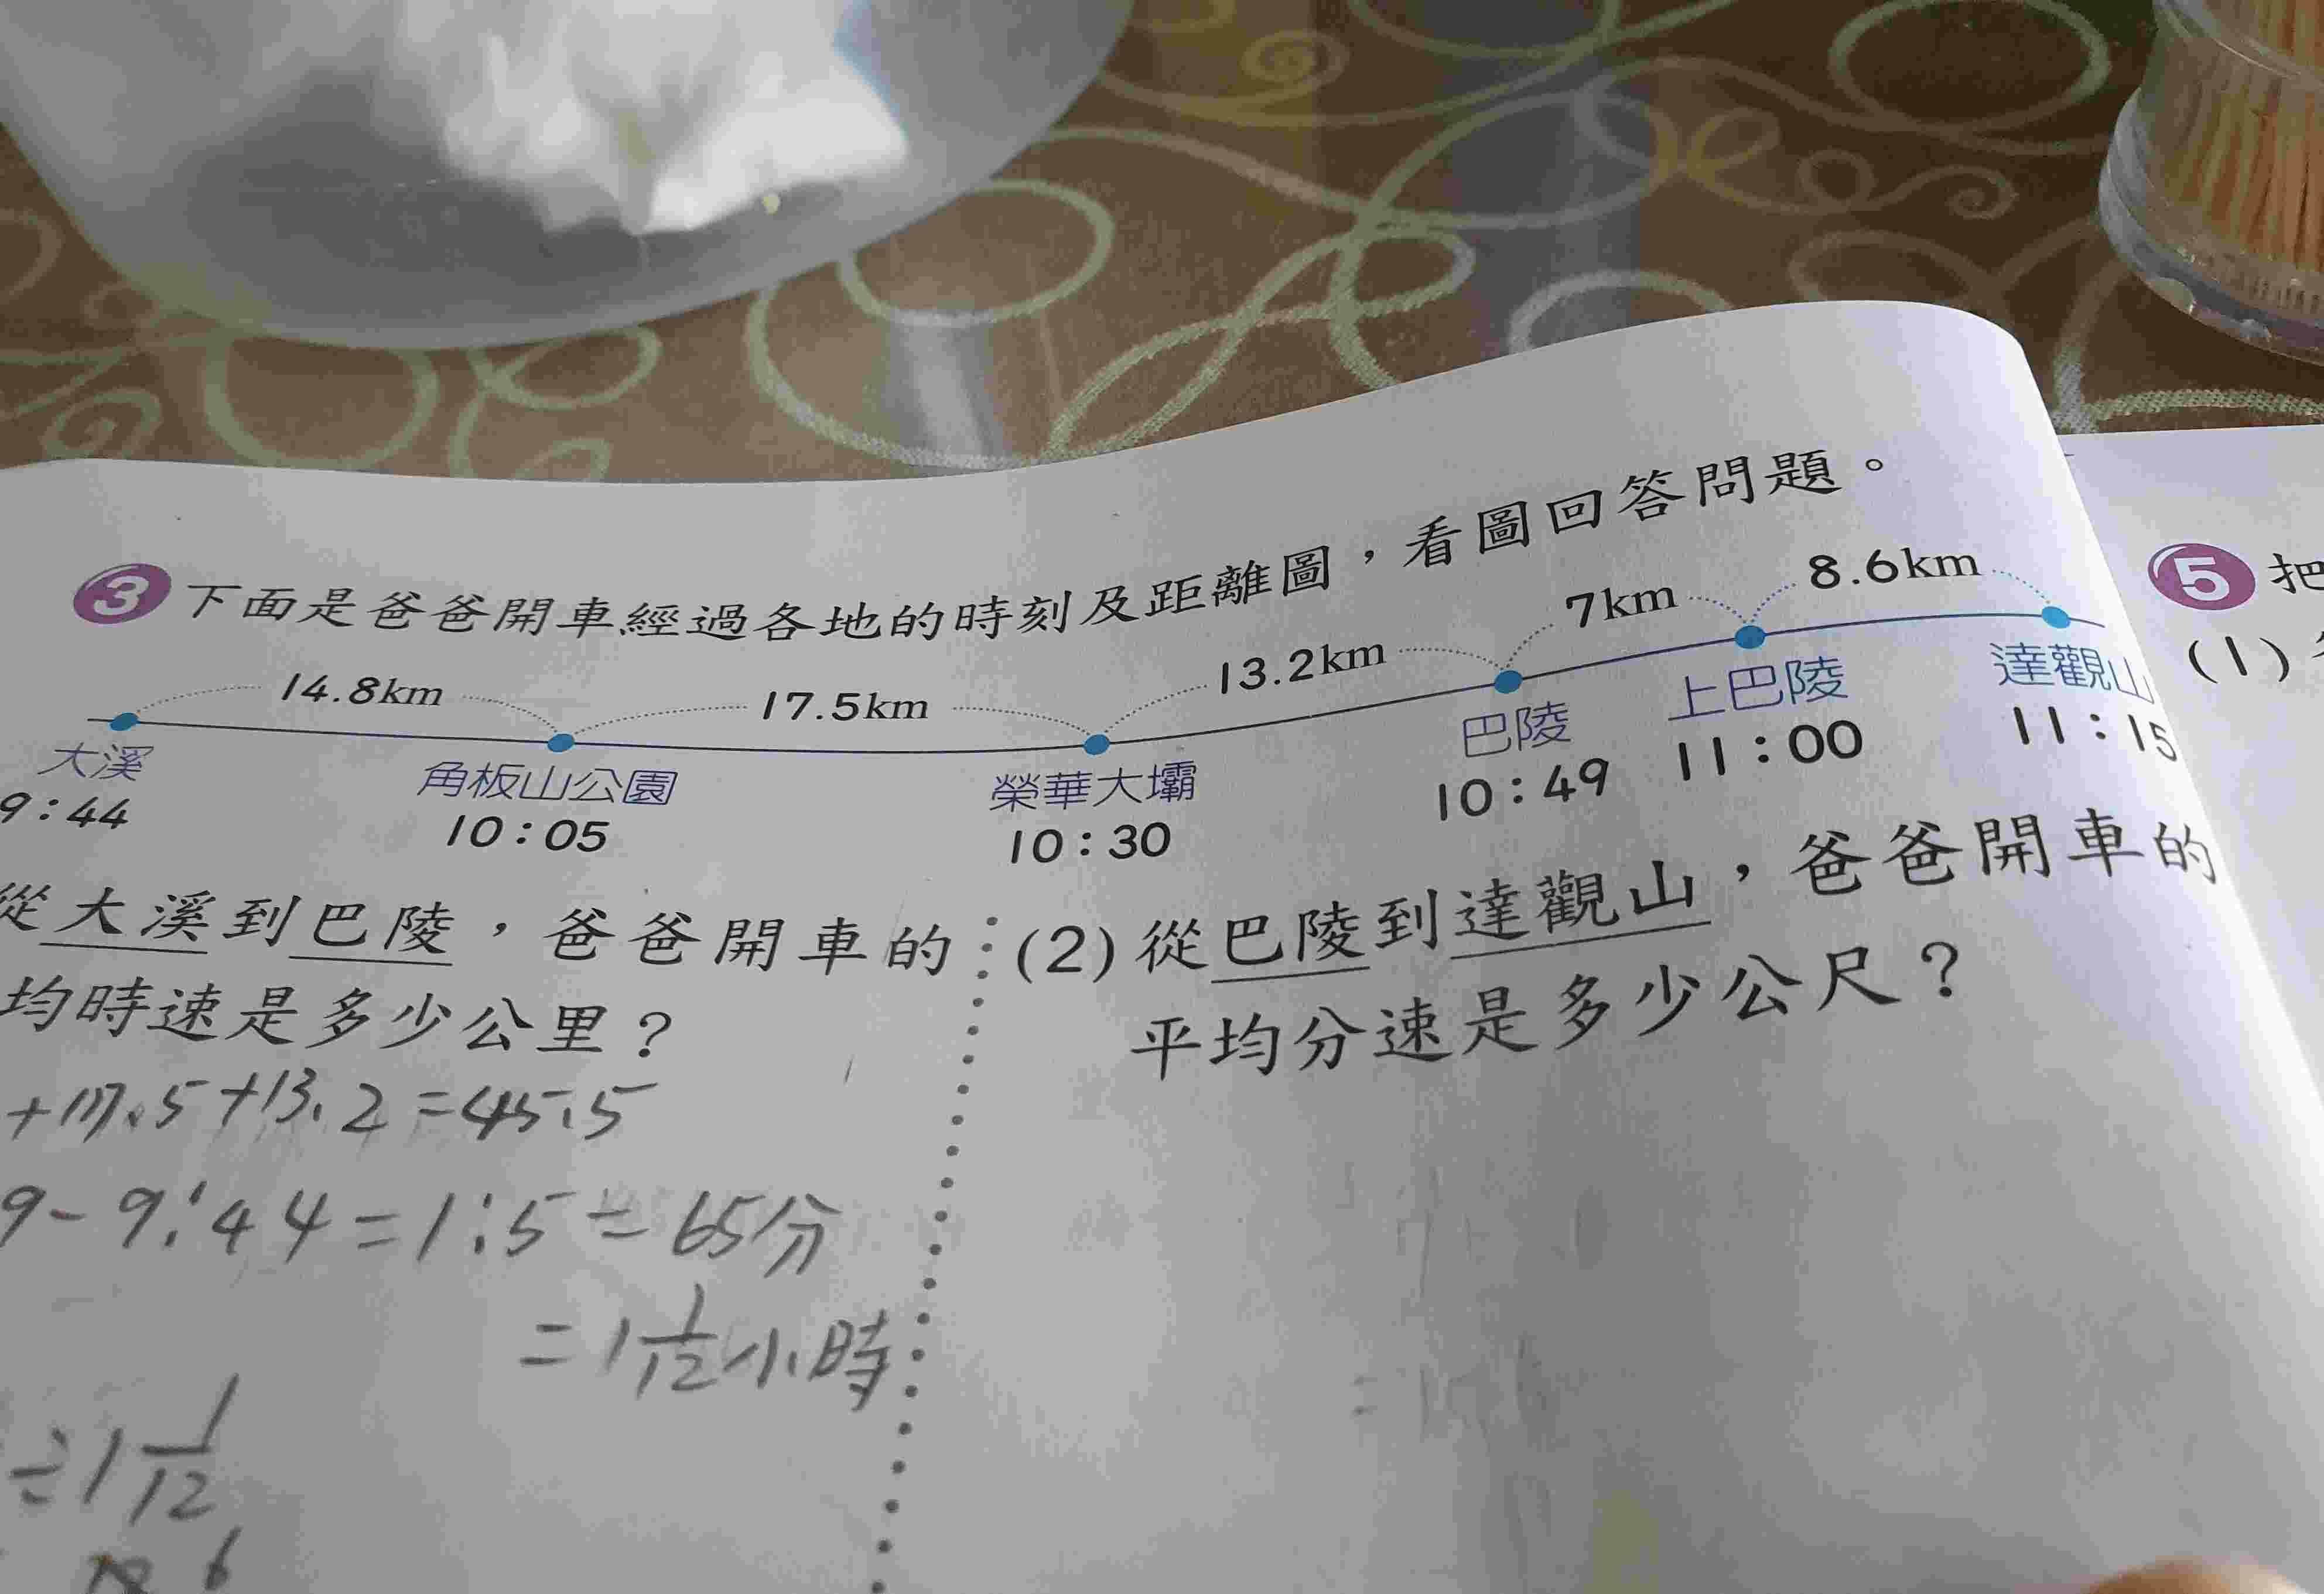 3 下面是爸爸開車經過各地的時刻及距離圖，看圖回答問題。
14.8km 17.5km 13.2km 7km 8.6km
大溪 角板山公園 榮華大壩 巴陵 上巴陵 達觀山
9：44 10：05 10：30 10：49 11：00 11：15
從大溪到巴陵，爸爸開車的
均時速是多少公里？
+17.5+13.2=45.5
9-9:44=1:5=65分
=1 1/12 小時
÷1 1/12
(2) 從巴陵到達觀山，爸爸開車的
平均分速是多少公尺？
5 把
(1)